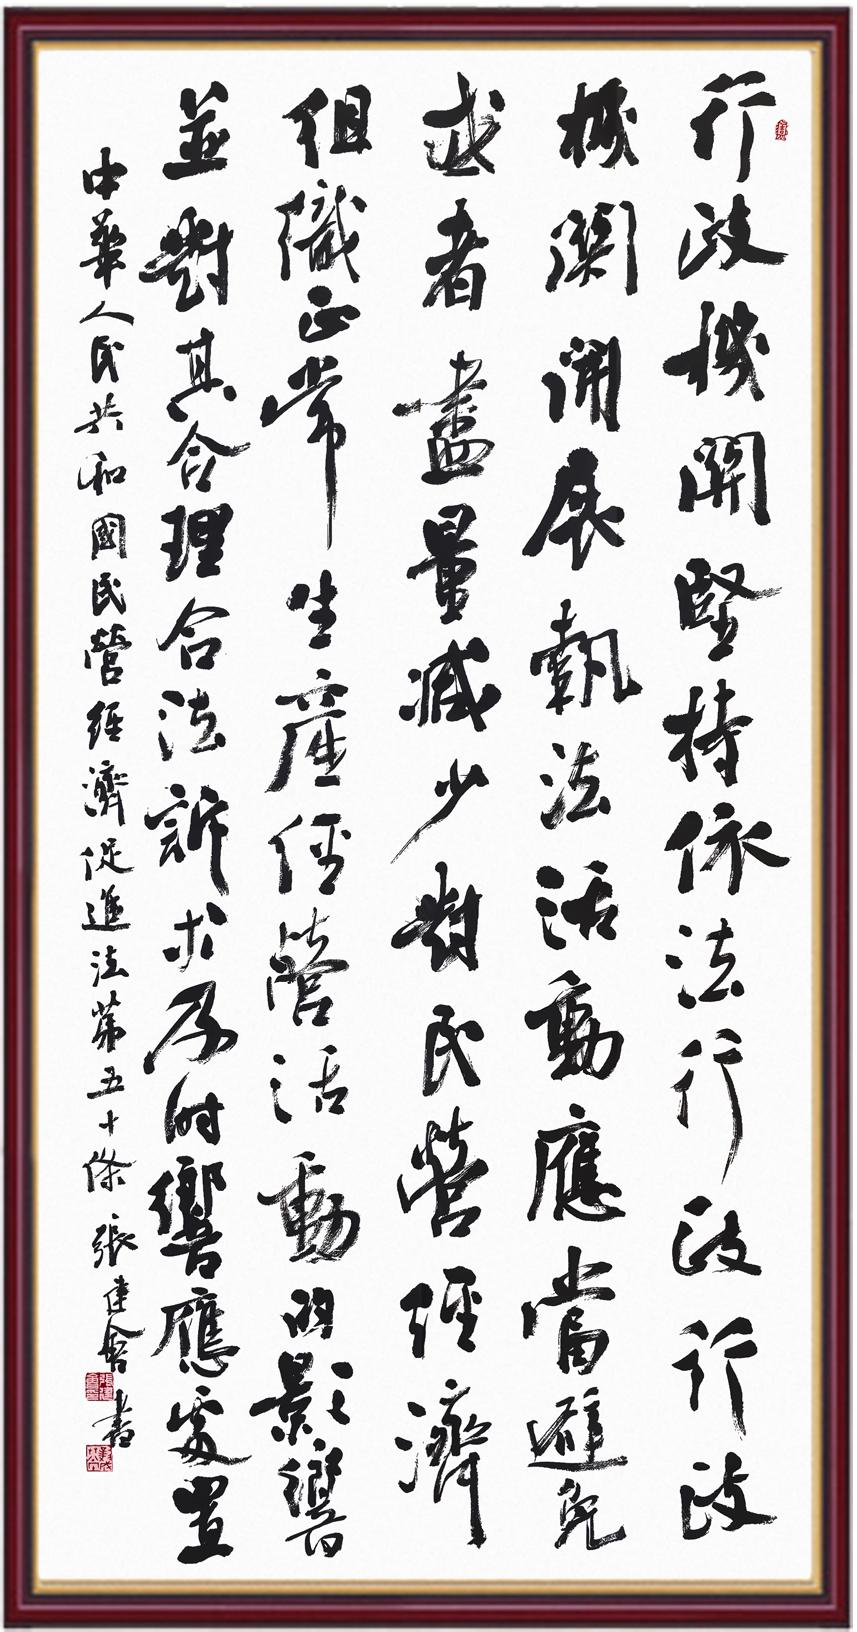 行政機関堅持依法行政行政
機関開展執法活動應當避免
或者盡量减少對民營經濟
組織正常生產經營活動的影響
並對其合理合法訴求及時響應處置
中華人民共和國民營經濟促進法第五十條 張建會書